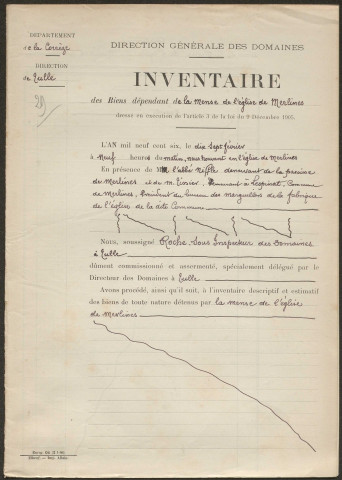 DÉPARTEMENT
de la Corrèze
DIRECTION
de Tulle
29
DIRECTION GÉNÉRALE DES DOMAINES
INVENTAIRE
des Biens dépendant de la Mense de l'église de Merlines
dressé en exécution de l'article 3 de la loi du 9 Décembre 1905.
L'AN mil neuf cent six, le dix sept février
à neuf heures du matin, nous trouvant en l'église de Merlines
En présence de MM l'abbé desservant de la paroisse
de Merlines et de M. Tixier, demeurant à Lespinat, Commune
de Merlines, Président du bureau des marguilliers de la fabrique
de l'église de la dite Commune
Nous, soussigné Roche Sous Inspecteur des Domaines
à Tulle
dûment commissionné et assermenté, spécialement délégué par le
Directeur des Domaines à Tulle
Avons procédé, ainsi qu'il suit, à l'inventaire descriptif et estimatif
des biens de toute nature détenus par la mense de l'église
de Merlines